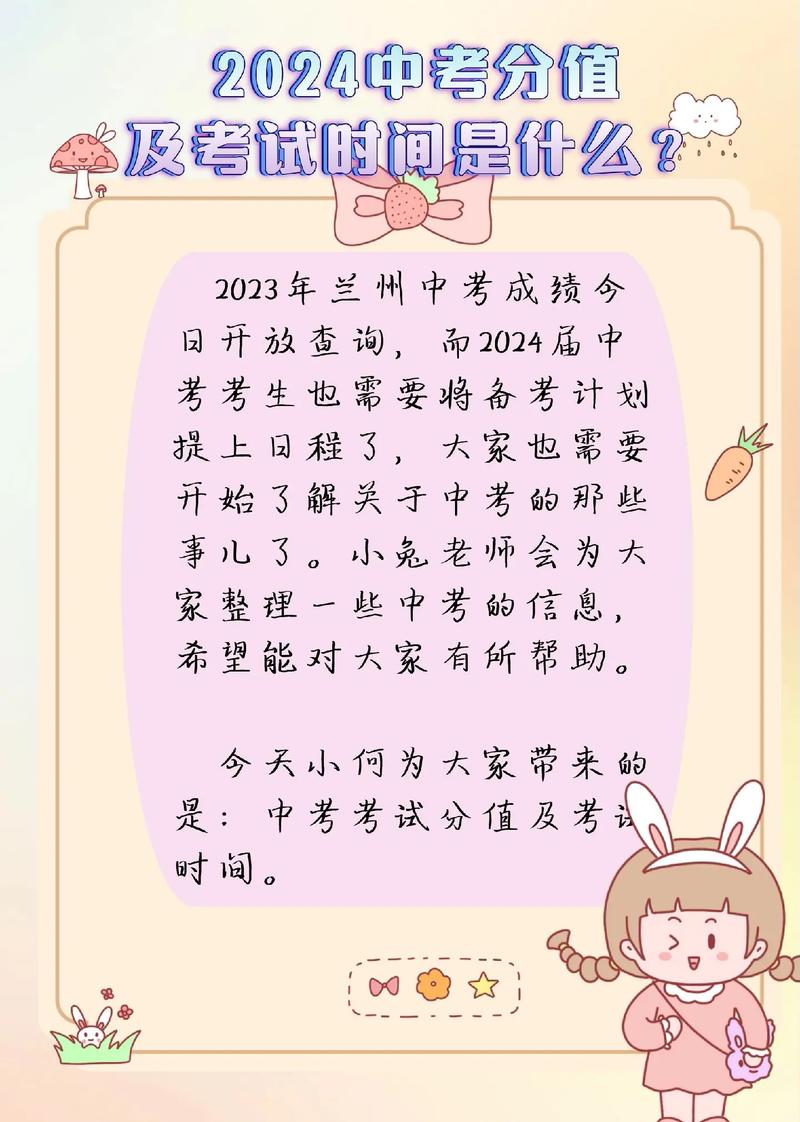 2024中考分值
及考试时间是什么?
2023年兰州中考成绩今
日开放查询，而2024届中
考考生也需要将备考计划
提上日程了，大家也需要
开始了解关于中考的那些
事儿了。小兔老师会为大
家整理一些中考的信息，
希望能对大家有所帮助。
今天小何为大家带来的
是：中考考试分值及考试
时间。